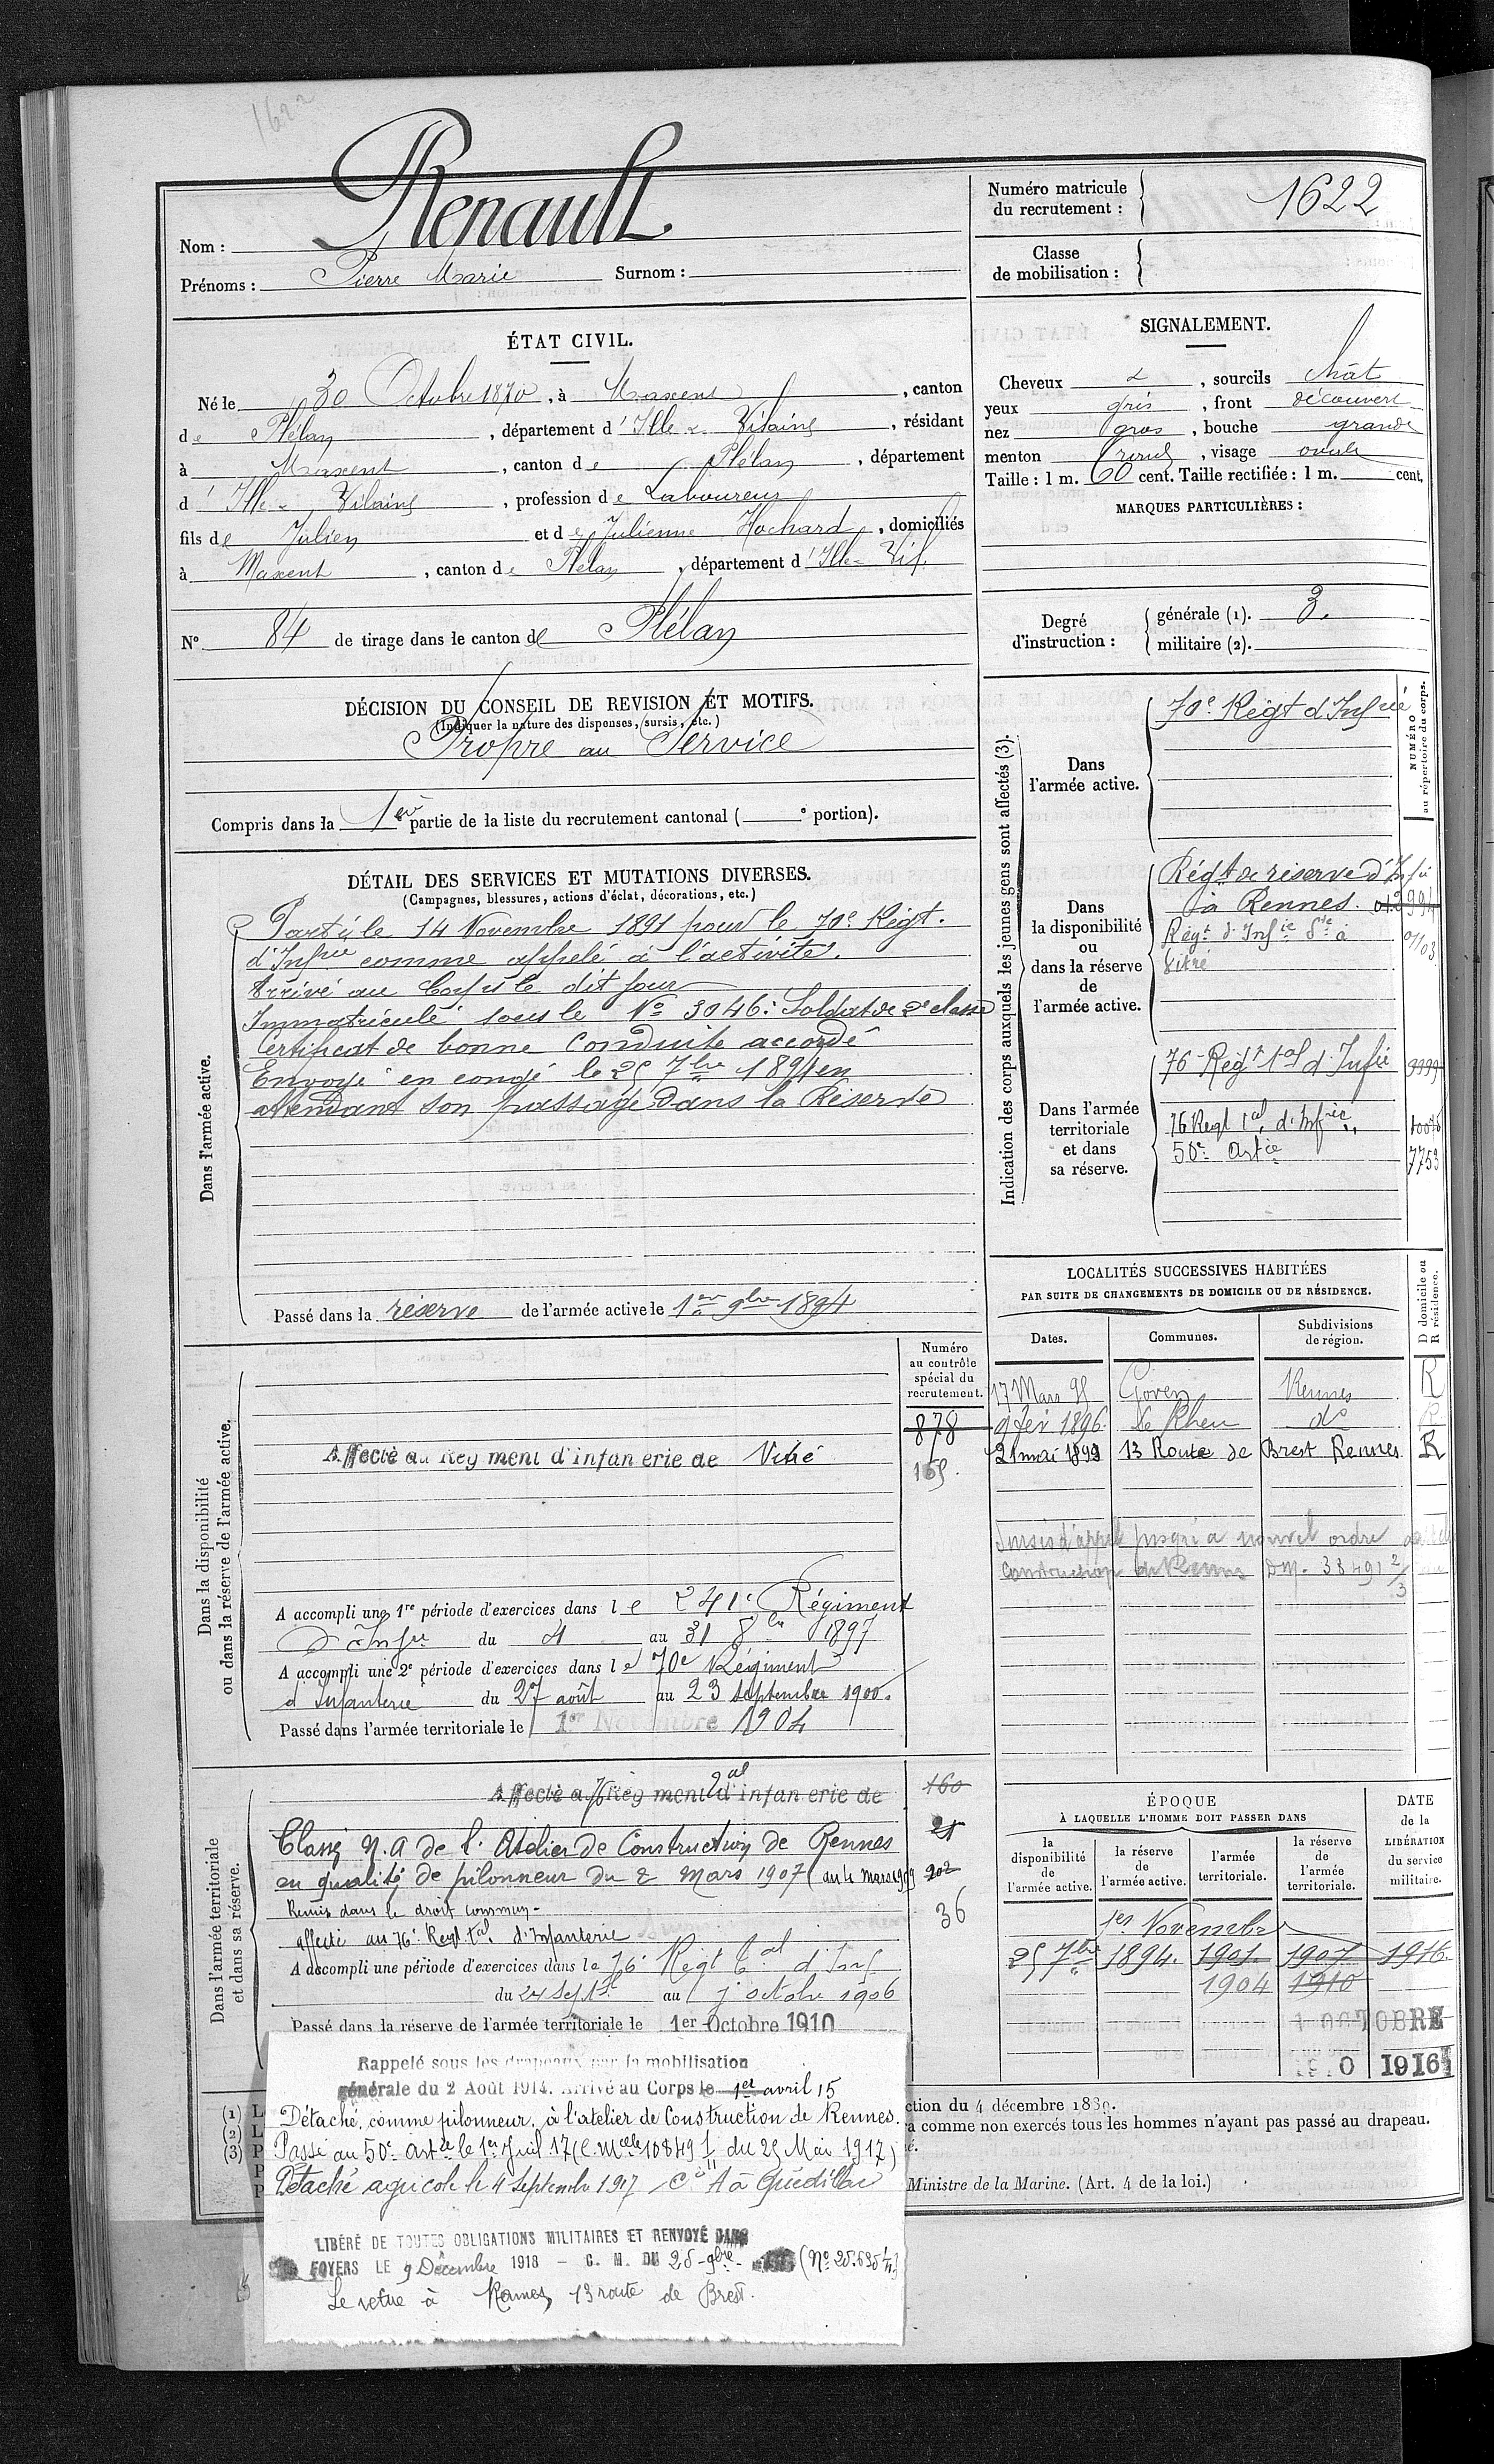 1622
Renault
Nom :
Prénoms : Pierre Marie Surnom :
Numéro matricule du recrutement : 1622
Classe de mobilisation :
ÉTAT CIVIL.
Né le 30 Octobre 1870, à Maxent, canton
de Plélan, département d'Ille & Vilaine, résidant
à Maxent, canton de Plélan, département
d'Ille & Vilaine, profession de Laboureur
fils de Julien et de Julienne Hochard, domiciliés
à Maxent, canton de Plélan, département d'Ille-Vil.
N° 84 de tirage dans le canton de Plélan
SIGNALEMENT.
Cheveux &, sourcils chât
yeux gris, front découvert
nez gros, bouche grande
menton rond, visage ovale
Taille : 1 m. 60 cent. Taille rectifiée : 1 m. cent.
MARQUES PARTICULIÈRES :
Degré d'instruction :
générale (1). 3.
militaire (2).
DÉCISION DU CONSEIL DE REVISION ET MOTIFS.
(Indiquer la nature des dispenses, sursis, etc.)
Propre au Service
Compris dans la 1ère partie de la liste du recrutement cantonal ( e portion).
DÉTAIL DES SERVICES ET MUTATIONS DIVERSES.
(Campagnes, blessures, actions d'éclat, décorations, etc.)
Dans l'armée active.
Parti le 14 Novembre 1891 pour le 70e Régt.
d'Infrie comme appelé à l'activité.
Arrivé au Corps le dit jour
Immatriculé sous le No 3046: Soldat de 2e classe
Certificat de bonne Conduite accordé
Envoyé en congé le 25 7bre 1894 en
attendant son passage dans la Réserve
Passé dans la réserve de l'armée active le 1er 9bre 1894
Indication des corps auxquels les jeunes gens sont affectés (3).
NUMÉRO au répertoire du corps.
Dans l'armée active.
70e Régt d'Infrie
Dans la disponibilité ou dans la réserve de l'armée active.
Régt de réserve d'Infie
à Rennes.
Régt d'Infie Sre à
Vitré
0103
Dans l'armée territoriale et dans sa réserve.
76e Régt tal d'Infie 9999
76 Regt tal d'Infrie 10076
50e Artie 7753
LOCALITÉS SUCCESSIVES HABITÉES
PAR SUITE DE CHANGEMENTS DE DOMICILE OU DE RÉSIDENCE.
Dates. Communes. Subdivisions de région. D domicile ou R résidence.
17 Mars 95 Goven Rennes R
9 fév 1896. Le Rheu do R
21 mai 1899 13 Route de Brest Rennes R
Sursis d'appel jusqu'à nouvel ordre
Construction de Rennes DM. 38491 2/3
Dans la disponibilité ou dans la réserve de l'armée active.
Numéro au contrôle spécial du recrutement.
878
Affecté au Régiment d'infanterie de Vitré
165.
A accompli une 1re période d'exercices dans le 241e Régiment
d'Infie du 4 au 31 8bre 1897
A accompli une 2e période d'exercices dans le 70e Régiment
d'Infanterie du 27 août au 23 septembre 1900.
Passé dans l'armée territoriale le 1er Novembre 1904
Dans l'armée territoriale et dans sa réserve.
Affecté au 76 Régiment tal d'infanterie de 160
Classé N.A de l'Atelier de Construction de Rennes 21
en qualité de pilonneur du 2 Mars 1907 au 4 mars 1909 202
Remis dans le droit commun-
affecté au 76e Regt tal d'Infanterie 36
A accompli une période d'exercices dans le 76e Regt tal d'Inf
du 24 Sept. au 7 octobre 1906
Passé dans la réserve de l'armée territoriale le 1er Octobre 1910
ÉPOQUE
À LAQUELLE L'HOMME DOIT PASSER DANS
la disponibilité de l'armée active. la réserve de l'armée active. l'armée territoriale. la réserve de l'armée territoriale.
DATE de la LIBÉRATION du service militaire.
1er Novembre
25 7bre 1894. 1901. 1907 1916.
1904 1910
1 OCTOBRE
1916
Rappelé sous les drapeaux par la mobilisation
générale du 2 Août 1914. Arrivé au Corps le 1er avril 15
Détaché, comme pilonneur, à l'atelier de Construction de Rennes.
Passé au 50e Artie le 1er Juil 17 (C. Melle 10849 1/11 du 25 Mai 1917)
Détaché agricole le 4 Septembre 1917 Cie A à Quédillac
LIBÉRÉ DE TOUTES OBLIGATIONS MILITAIRES ET RENVOYÉ DANS
FOYERS LE 9 Décembre 1918 - C. M. DU 28-9bre-
Se retire à Rennes, 13 route de Brest.
(1) L
(2) L
(3) P
P
P
ction du 4 décembre 1889.
a comme non exercés tous les hommes n'ayant pas passé au drapeau.
é.
Ministre de la Marine. (Art. 4 de la loi.)